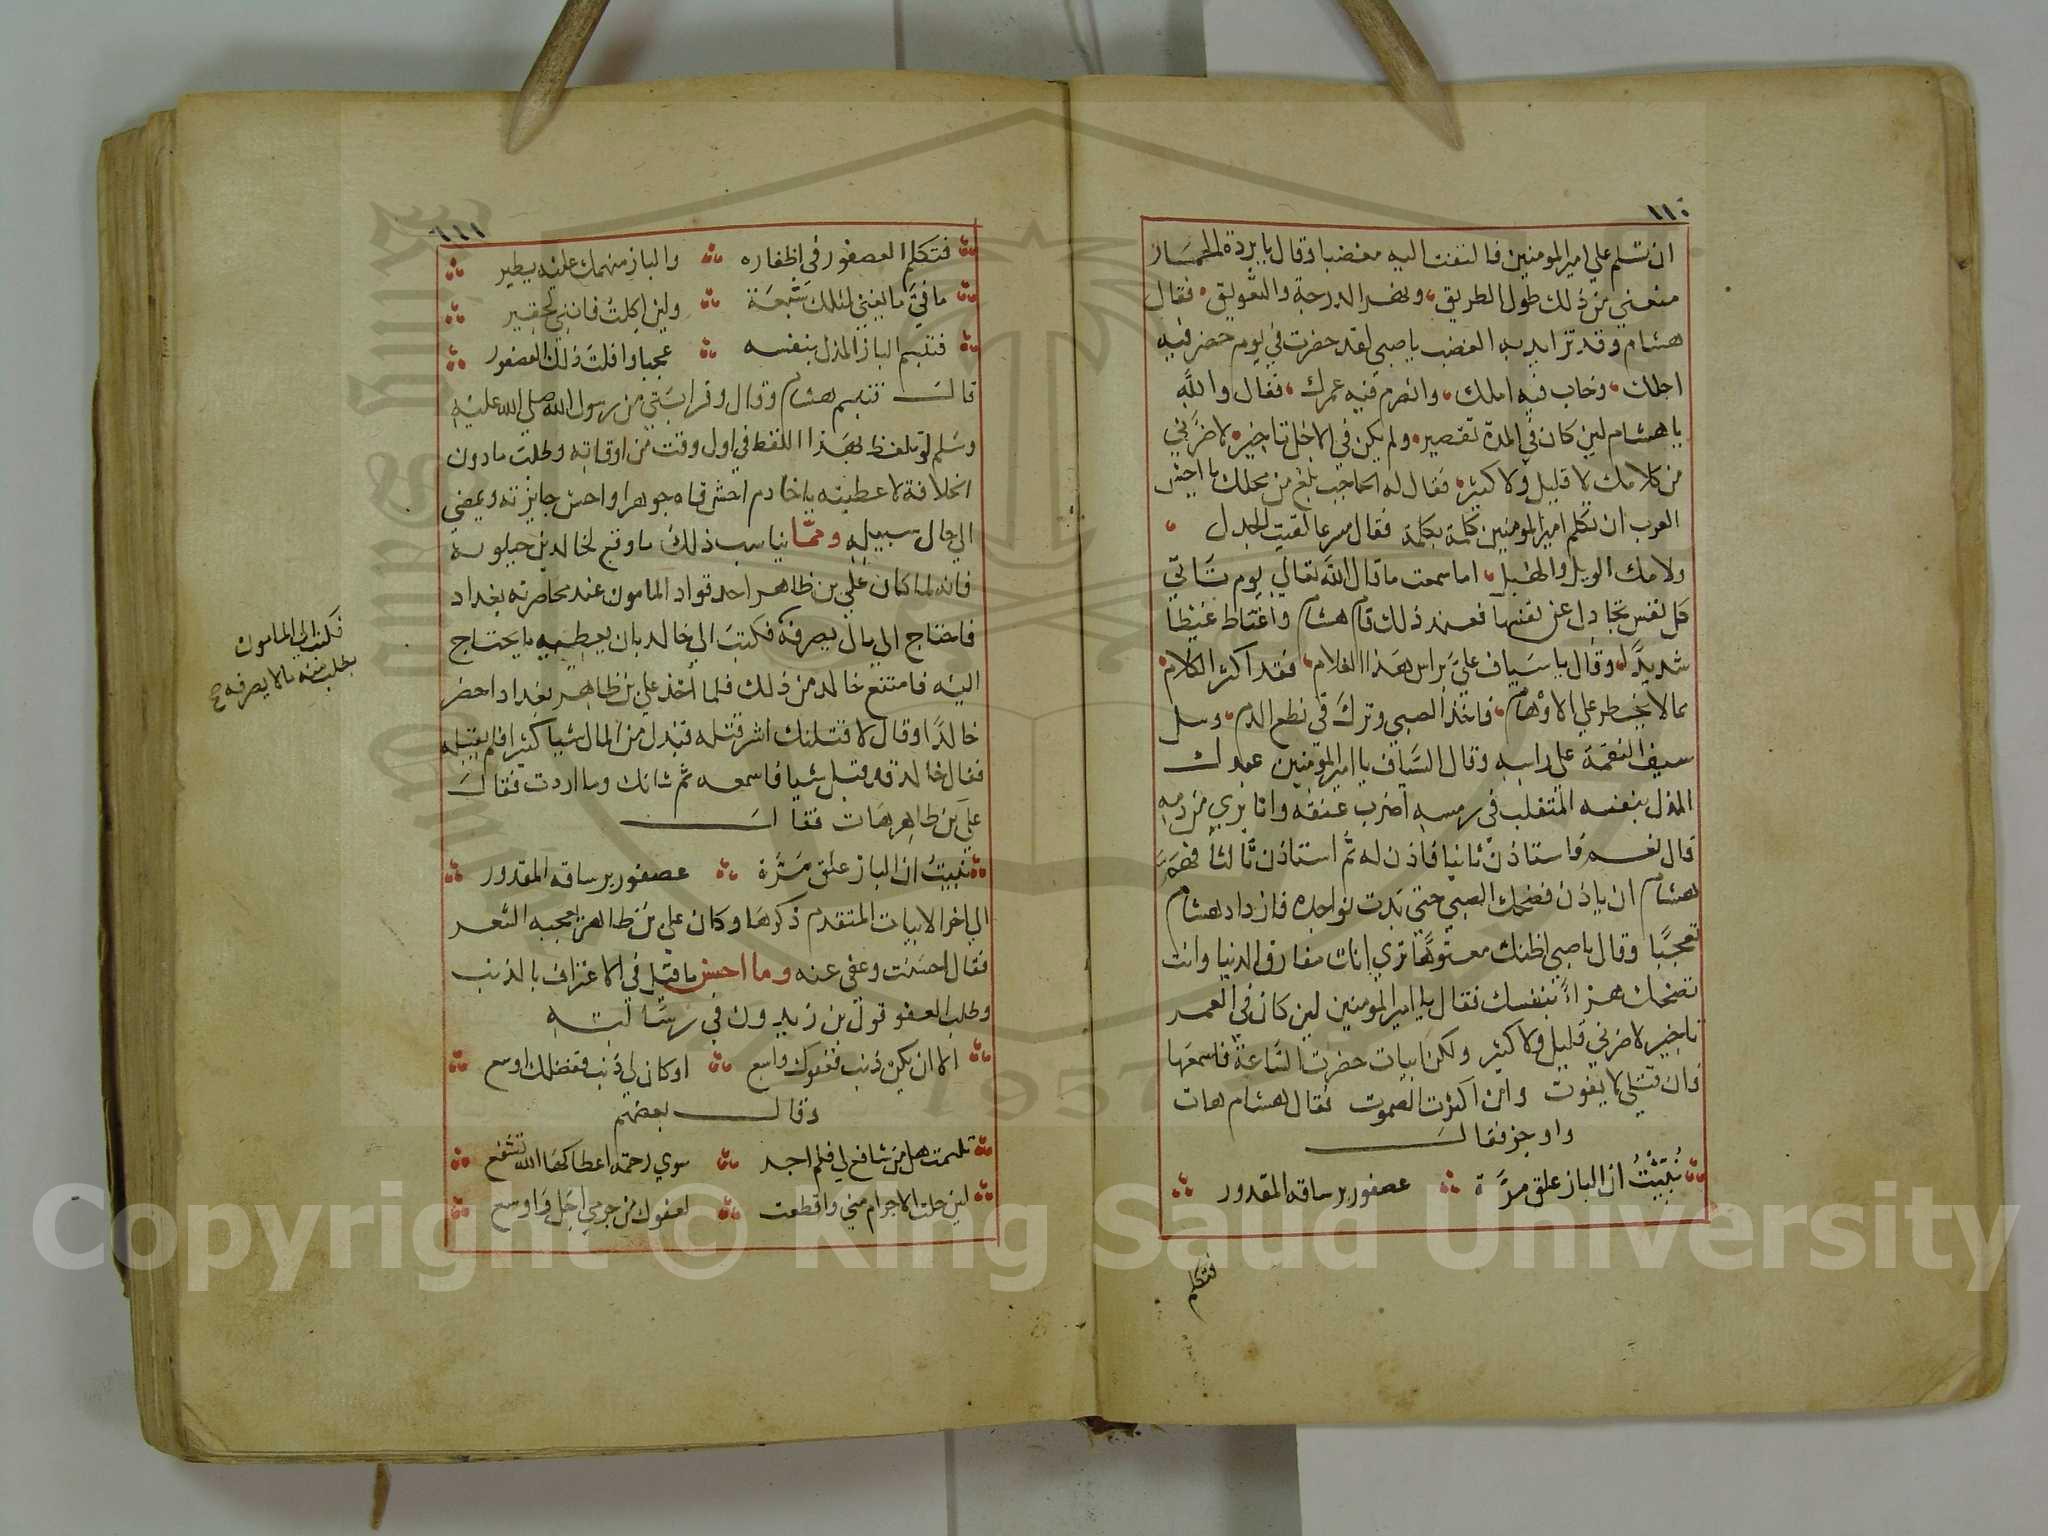 ١١٠
ان تسلم علي امير المومنين فالتفت اليه مغضبا وقال يا بردة الحمار
منعني من ذلك طول الطريق، ونهز الدرجة والتعويق، فقال
هشام وقد تزايد به الغضب يا صبي لقد حضرت في يوم حضر فيه
اجلك، وخاب فيه املك، وانصرم فيه عمرك، فقال والله
يا هشام لين كان في المدة تقصير، ولم يكن في الاجل تاخير، لا ضرني
من كلامك لا قليل ولا كثير، فقال له الحاجب بلغ من محلك يا اخس
العرب ان تكلم امير المومنين كلمة بكلمة فقال مسرعا لقيت الجدل
ولامك الويل والهبل، اما سمعت ما قال الله تعالي يوم تاتي
كل نفس تجادل عن نفسها فعند ذلك قام هشام واغتاظ غيظا
شديدا، وقال يا سياف علي براس هذا الغلام، فقد اكثر الكلام
بما لا يخطر علي الاوهام، فاخذ الصبي وترك في نطع الدم، وسل
سيف النقمة علي راسه وقال السياف يا امير المومنين عبدك
المذل بنفسه المتقلب في رمسه اضرب عنقه وانا بري من دمه
قال نعم فاستاذن ثانيا فاذن له ثم استاذن ثالثا فهم
هشام ان ياذن فضحك الصبي حتي بدت نواجده فازداد هشام
تعجبا وقال يا صبي اظنك معتوها تري انك مفارق الدنيا وانت
تضحك هزاء بنفسك فقال يا امير المومنين لين كان في العمر
تاخير لا ضرني قليل ولا كثير ولكن ابيات حضرت الساعة فاسمعها
فان قتلي لا يفوت وان اكثرت الصموت فقال هشام هات
واوجز فقال
نُبِّئْتُ ان الباز علق مرَّة عصفور بر ساقه المقدور
فتكلم
١١١
فتكلم العصفور في اظفاره والباز منهمك عليه يطير
ما فيَّ ما يغني لمثلك شبعة ولين اكلت فانني لحقير
فتبسم الباز المذل بنفسه عجبا وافلت ذلك العصفور
قال فتبسم هشام وقال وقرابتي من رسول الله صلي الله عليه
وسلم لو تلفظ بهذا اللفظ في اول وقت من اوقاته وطلب ما دون
الخلافة لاعطيته يا خادم احش فاه جوهرا واحسن جايزته ويمضي
الي حال سبيله ومما يناسب ذلك ما وقع لخالد بن جيلوية
فانه لما كان علي بن ظاهر احد قواد المامون عند محاصرته بغداد
فاحتاج الي مال يصرفه فكتب الي خالد بان يعطيه ما يحتاج
اليه فامتنع خالد من ذلك فلما اخذ علي بن ظاهر بغداد احضر
خالدًا وقال لاقتلنك اشر قتله فبذل من المال شيا كثيرا فلم يقبله
فقال خالد قد قيل شيا فاسمعه ثم شانك وما اردت فقال
علي بن طاهر هات فقال
نبيت ان الباز علق مرَّة عصفور بر ساقه المقدور
الي اخر الابيات المتقدم ذكرها وكان علي بن طاهر يعجبه الشعر
فقال احسنت وعفي عنه وما احسن ما قيل في الاعتراف بالذنب
وطلب العفو قول بن زيدون في رسالته
الا ان يكن ذنب فعفوك واسع او كان لي ذنب ففضلك اوسع
وقال بعضهم
تلهمت هل من شافع لي فلم اجد سوي رحمة اعطاكها الله تشفع
لين جلت الاجرام مني واقطعت لعفوك من جرمي اجل واوسع
فكتب الي المامون
بطلب منه مالا يصرفه صح
Copyright © King Saud University
1957